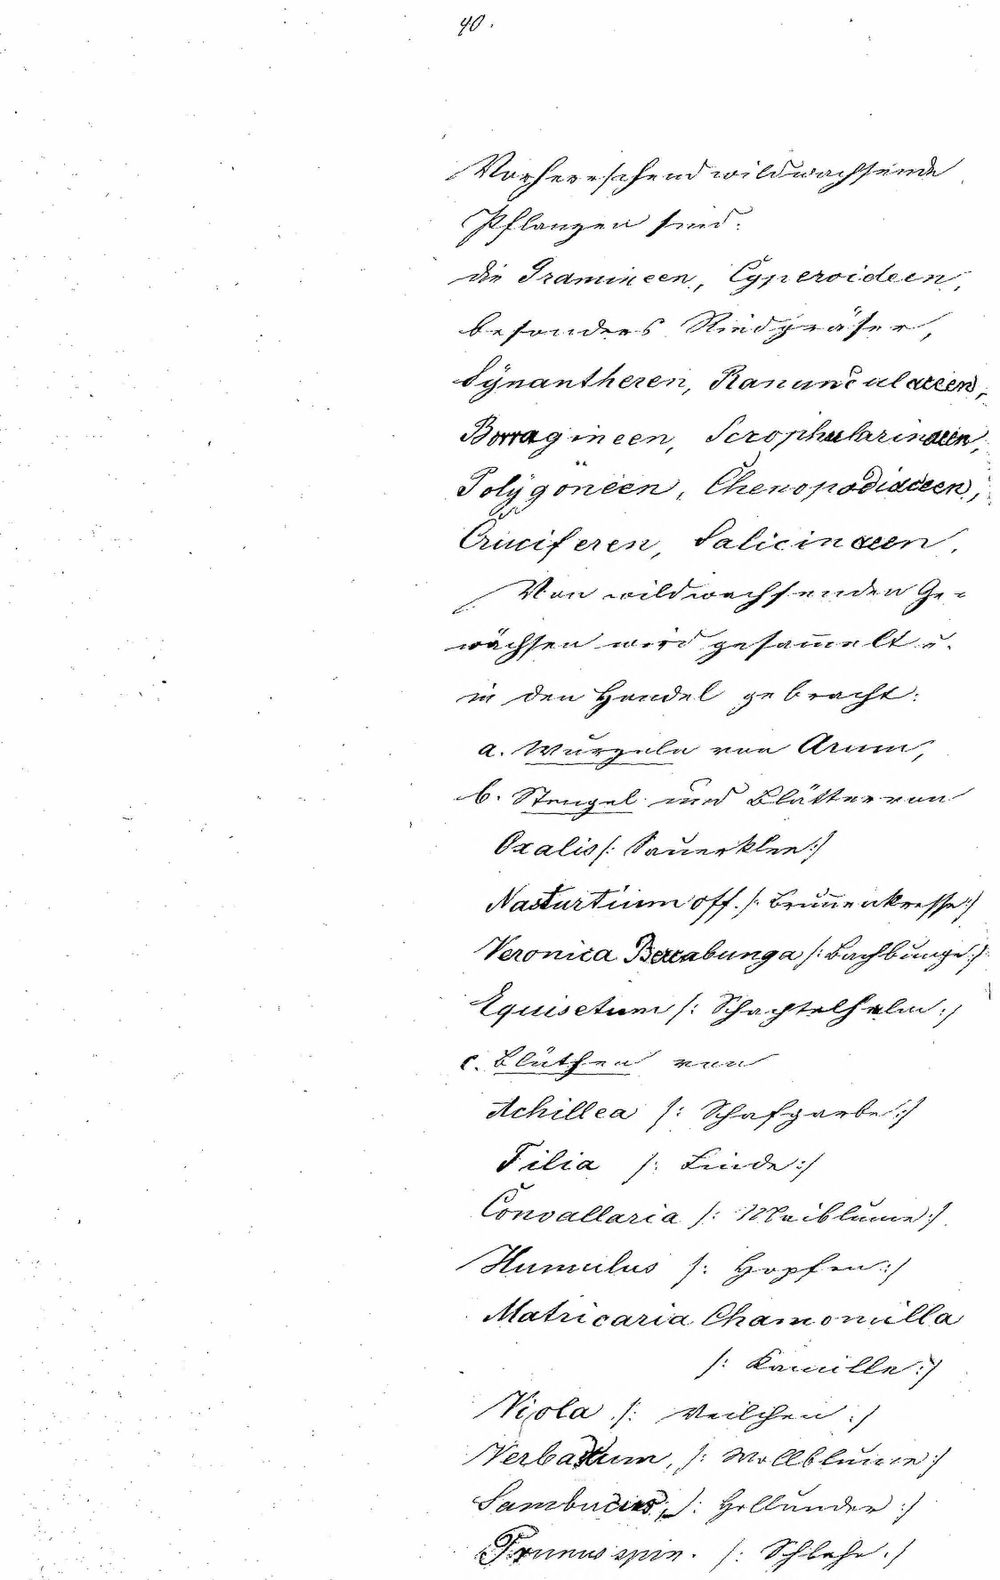 40.
Vorherrschend wildwachsende
Pflanzen sind:
die Gramineen, Cyperoideen,
besonders Riedgräser,
Synantheren, Ranunculaceen,
Borragineen, Scrophularineen,
Polygoneen, Chenopodiaceen,
Cruciferen, Salicineen.
Von wildwachsenden Ge-
wächsen wird gesam̄elt u.
in den Handel gebracht:
a. Wurzeln von Arum,
b. Stengel und Blätter von
Oxalis /: Sauerklee :/
Nasturtium off. /: Brun̄enkresse :/
Veronica Beccabunga /: Bachbunge :/
Equisetum /: Schachtelhalm :/
c. Blüthen von
Achillea /: Schafgarbe :/
Tilia /: Linde :/
Convallaria /: Maiblume :/
Humulus /: Hopfen :/
Matricaria Chamomilla
/: Kamille :/
Viola /: Veilchen :/
Verbascum, /: Wollblume :/
Sambucus, /: Hollunder :/
Prunus spin. /: Schlehe :/